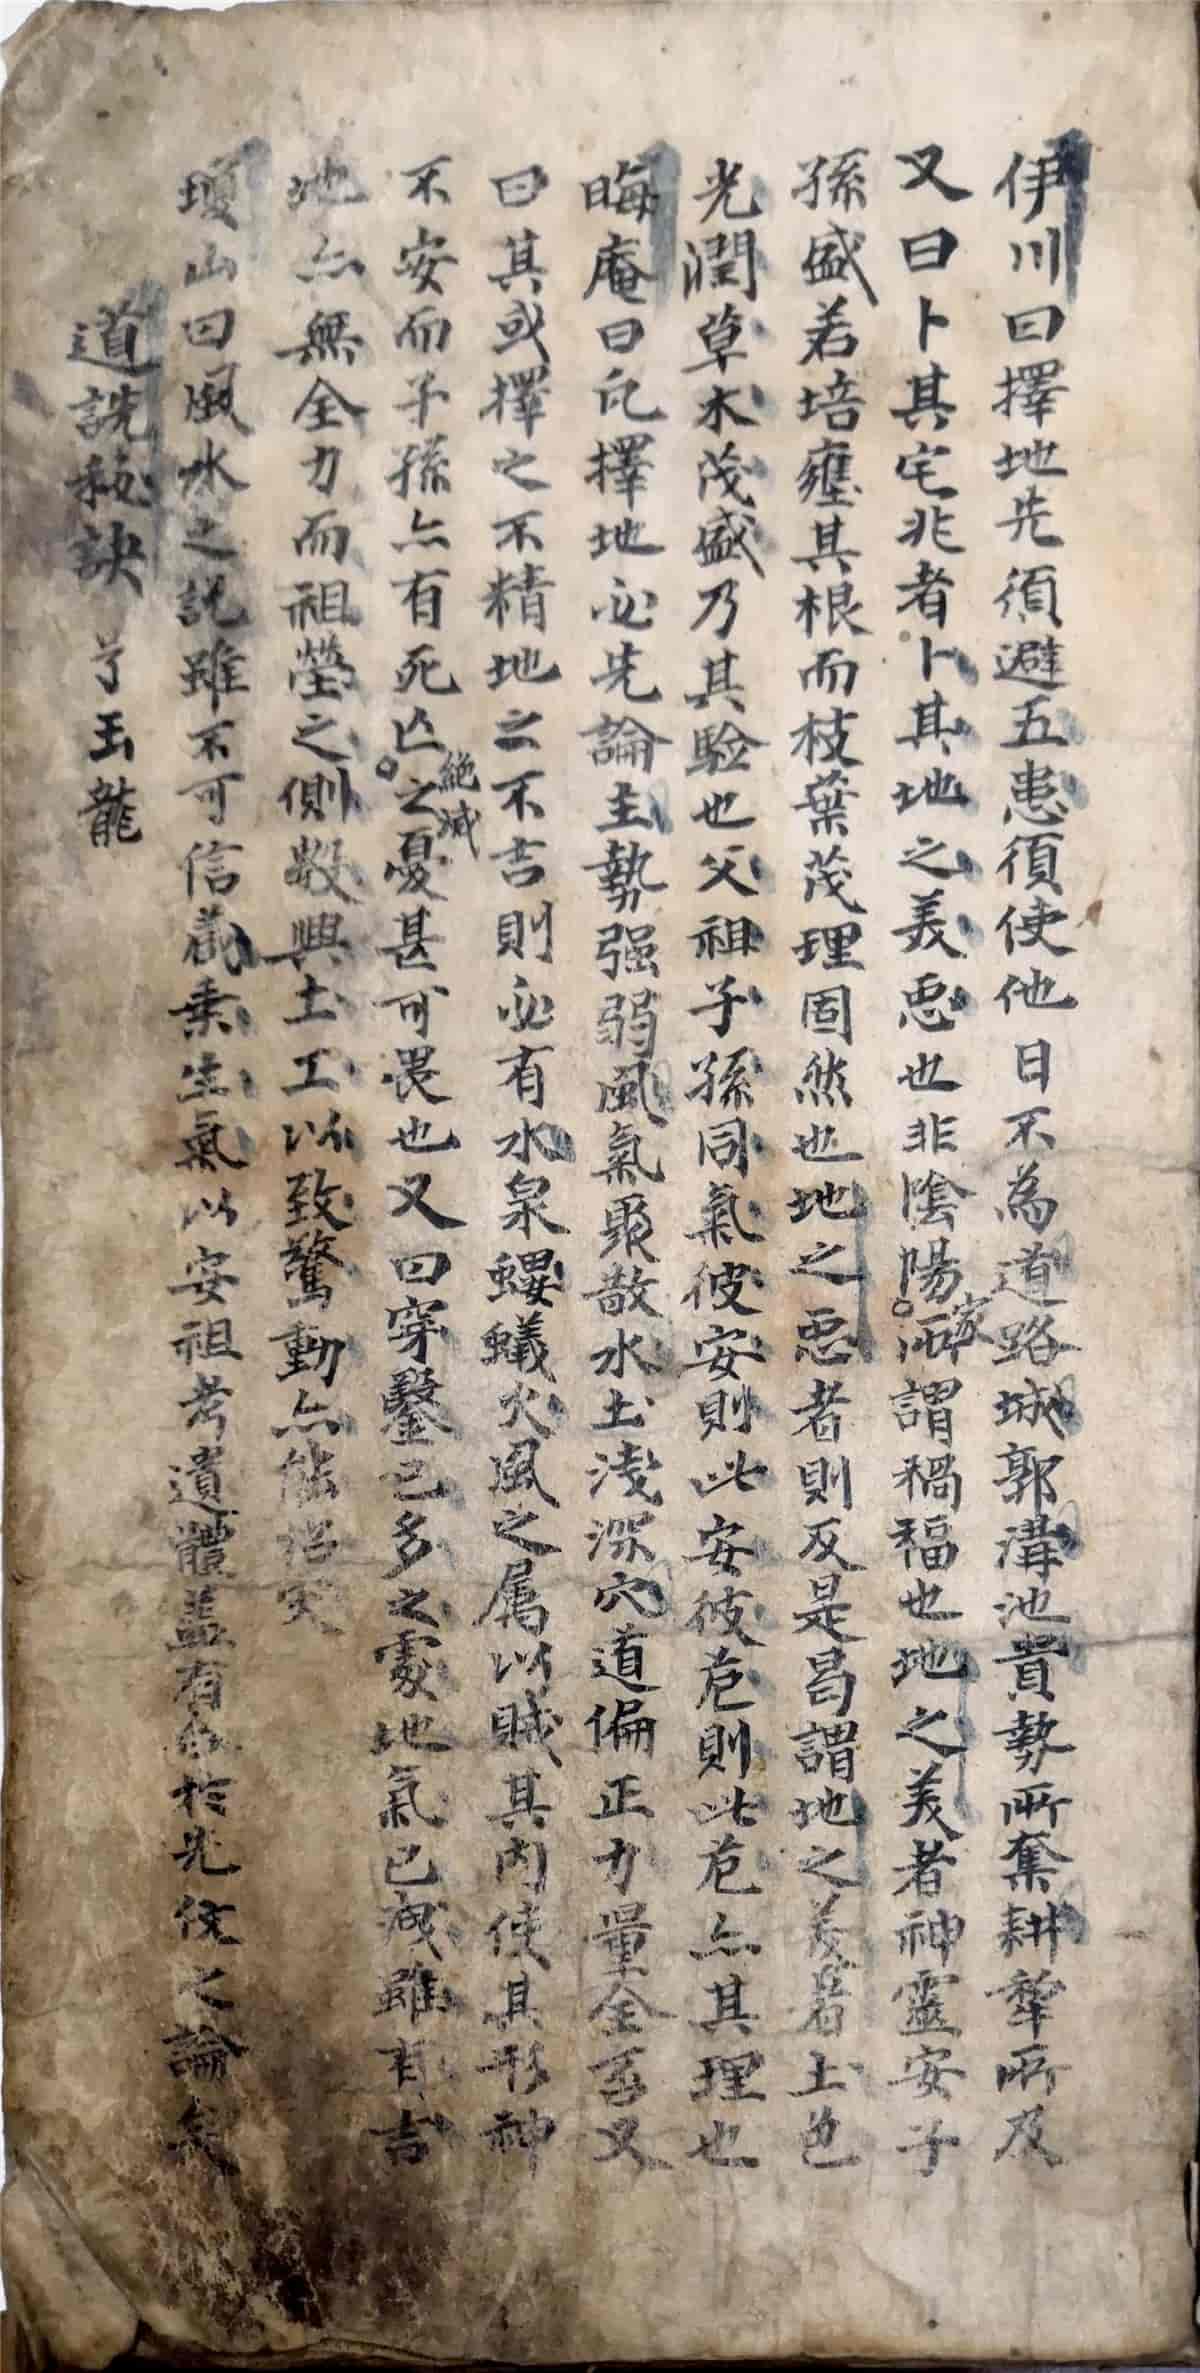 伊川曰擇地先須避五患須使他日不為道路城郭溝池貴勢所奪耕犂所及
又曰卜其宅兆者卜其地之美惡也非陰陽家所謂禍福也地之美者神靈安子
孫盛若培壅其根而枝葉茂理固然也地之惡者則反是曷謂地之美者土色
光潤草木茂盛乃其驗也父祖子孫同氣彼安則此安彼危則此危亦其理也
晦庵曰凡擇地必先論主勢强弱風氣聚散水土淺深穴道偏正力量全否又
曰其或擇之不精地之不吉則必有水泉螻蟻火風之屬以賊其內使其形神
不安而子孫亦有死亡絶滅之憂甚可畏也又曰穿鑿已多之處地氣已洩雖有吉
地亦無全力而祖塋之側數興土工以致驚動亦能招災
瓊山曰風水之說雖不可信葬乘生氣以安祖考遺體盖有於先㑨之論矣
道詵秘訣 玉龍